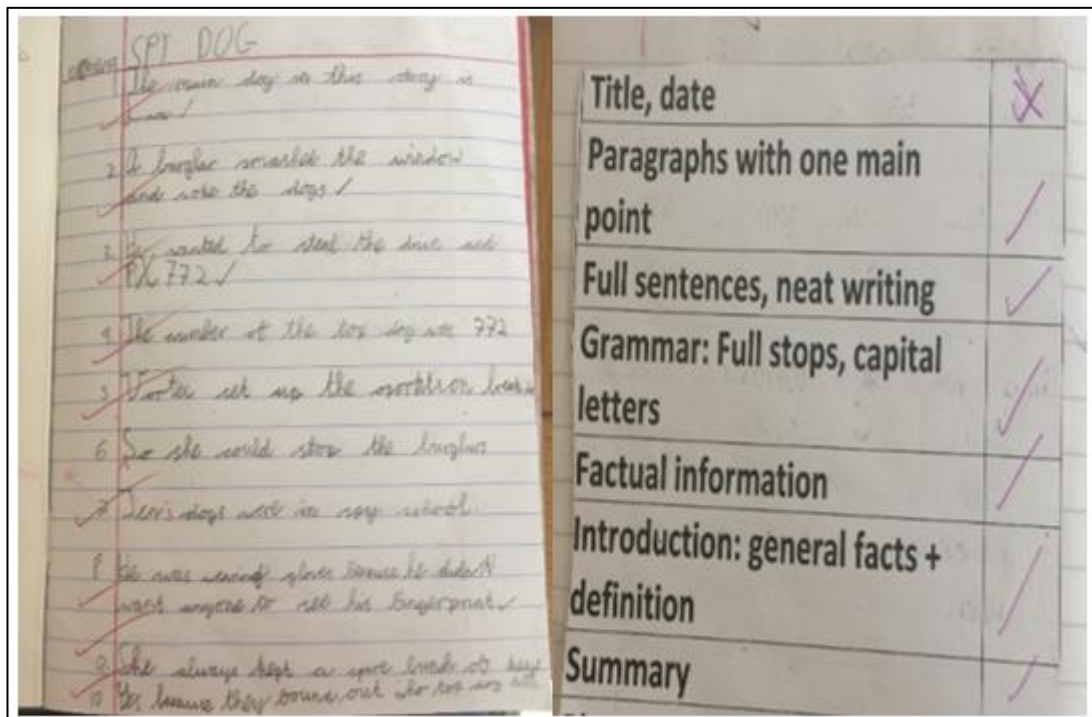 SPY DOG
1 The main dog in this story is
2 A burglar smashed the window
and woke the dogs
3 He wanted to steal the
PX 772
4 The number of the top dog was 772
5 set up the
6 So she could stop the burglar
7 dogs were in spy school.
8 He was wearing gloves because he didn't
want anyone to see his fingerprint
9 She always kept a spare bunch of keys
10 Yes because they out who top dog
Title, date
Paragraphs with one main
point
Full sentences, neat writing
Grammar: Full stops, capital
letters
Factual information
Introduction: general facts +
definition
Summary